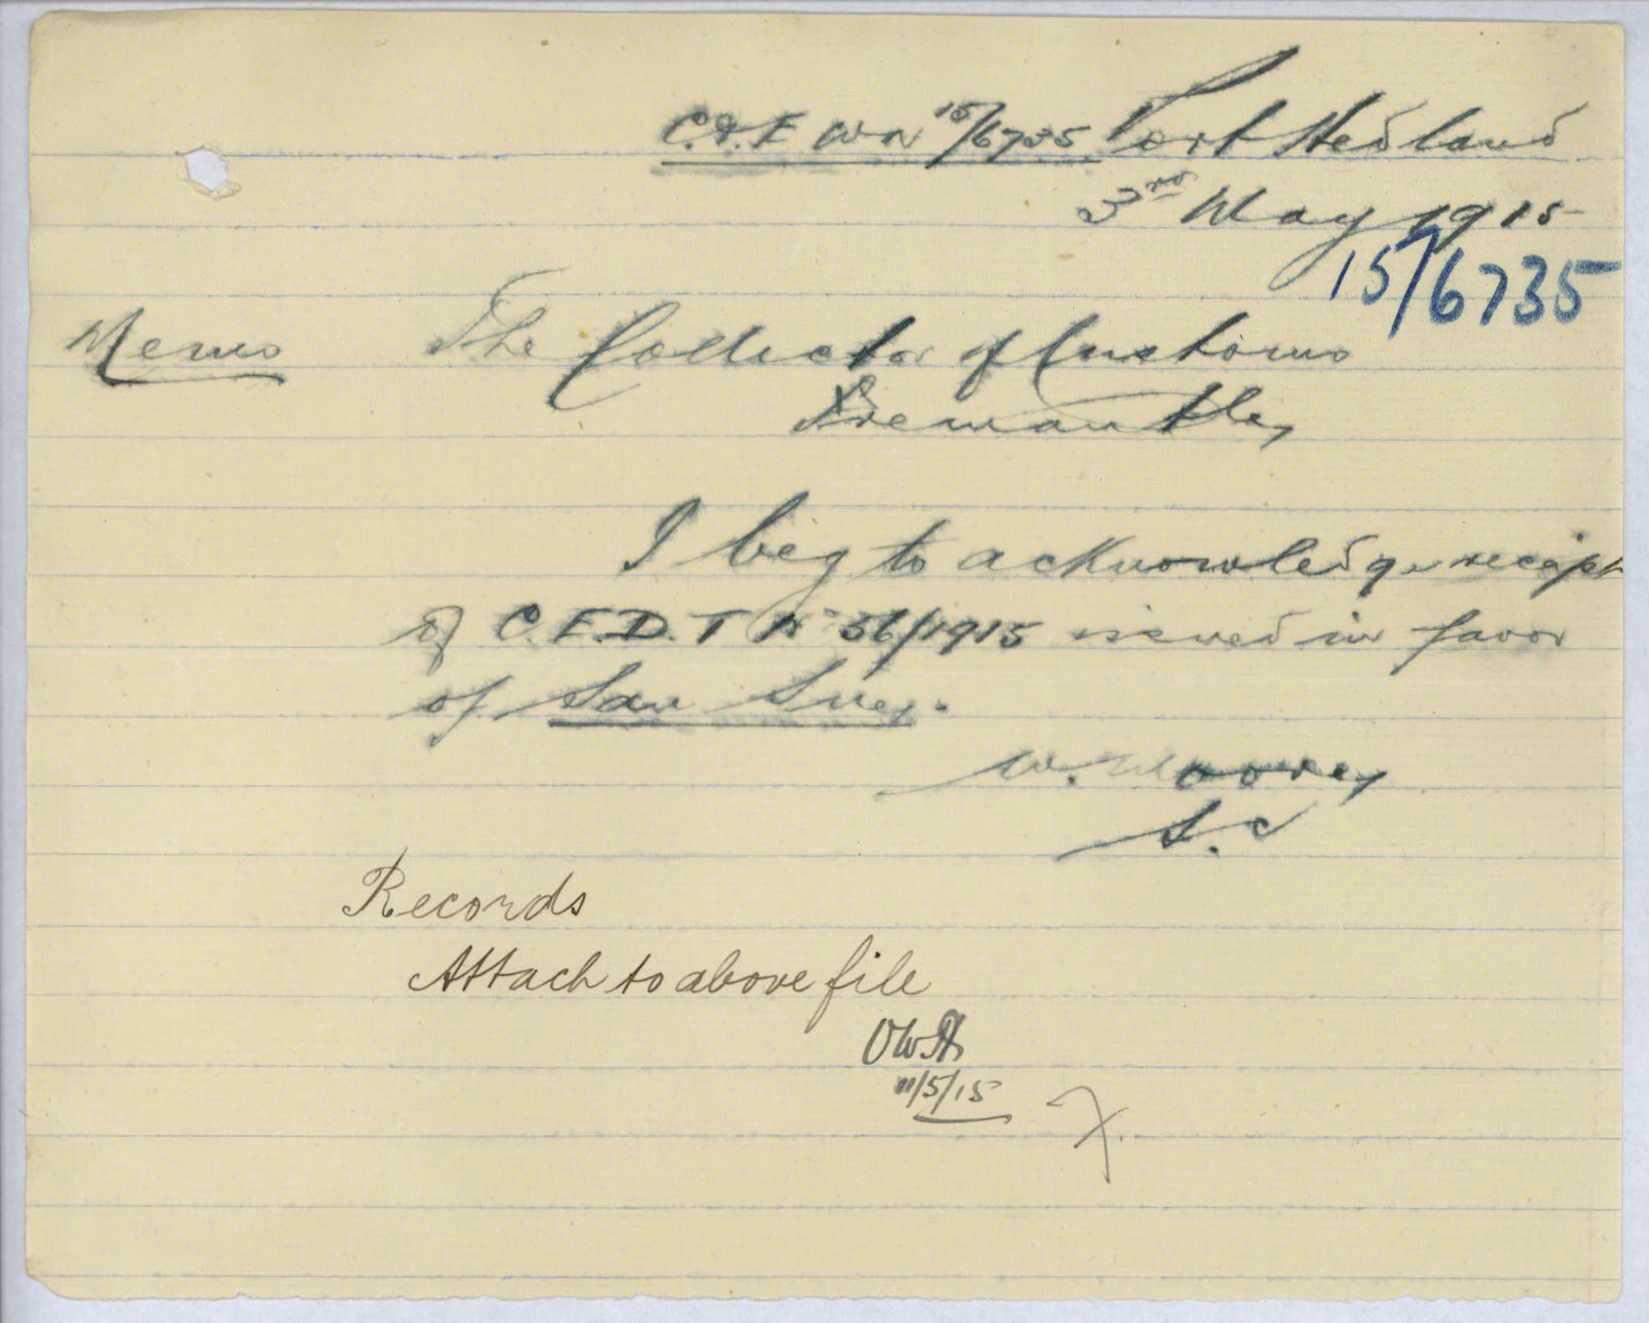 C. & E W N 15/6735 Port Hedland
3rd May 1915
15/6735
Memo The Collector of Customs
Fremantle,
I beg to acknowledge receipt
of C.E.D.T No 36/1915 issued in favor
of San Suey.
W. Moorey
S.C
Records
Attach to above file
OWH
11/5/15